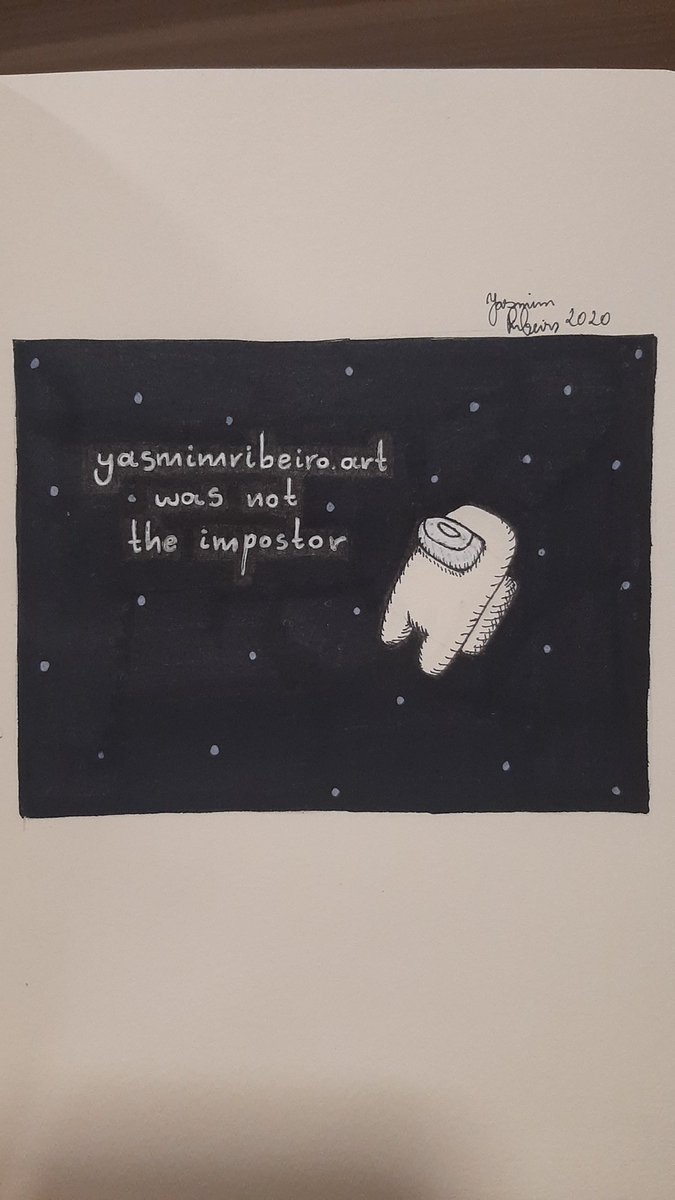 Yasmim
Ribeiro 2020
yasmimribeiro.art
was not
the impostor